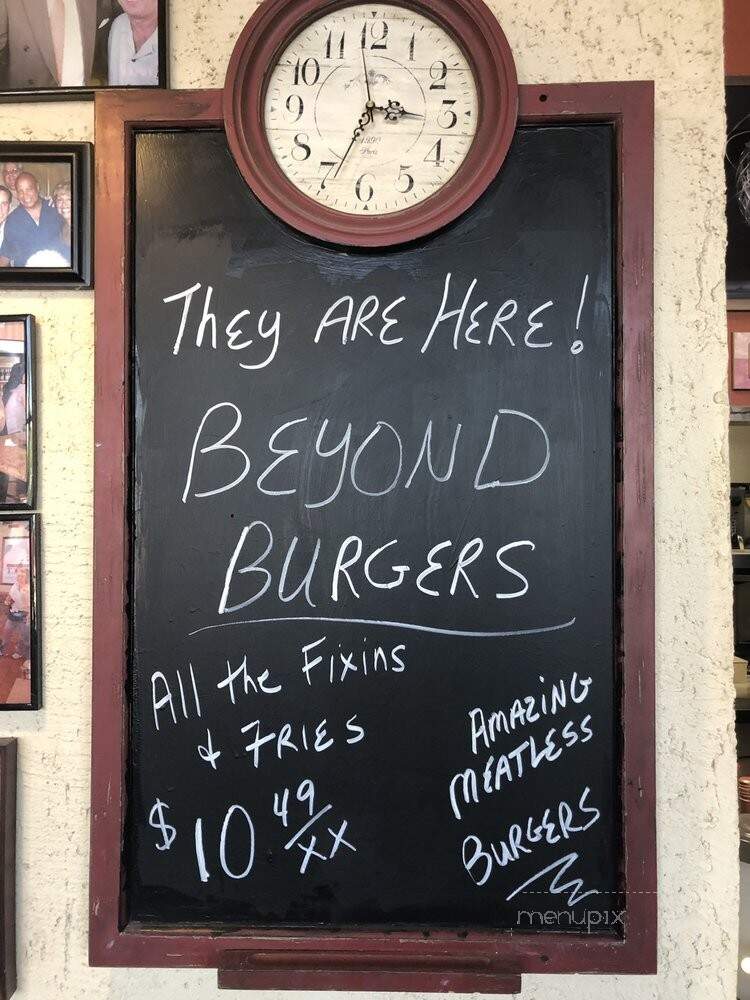 11 12 1
10 2
9 3
8 4
7 6 5
1890
Paris
They ARE HERE!
BEYOND
BURGERS
All the Fixins
& FRIES
$10 49/xx
AMAZING
MEATLESS
BURGERS
menupix